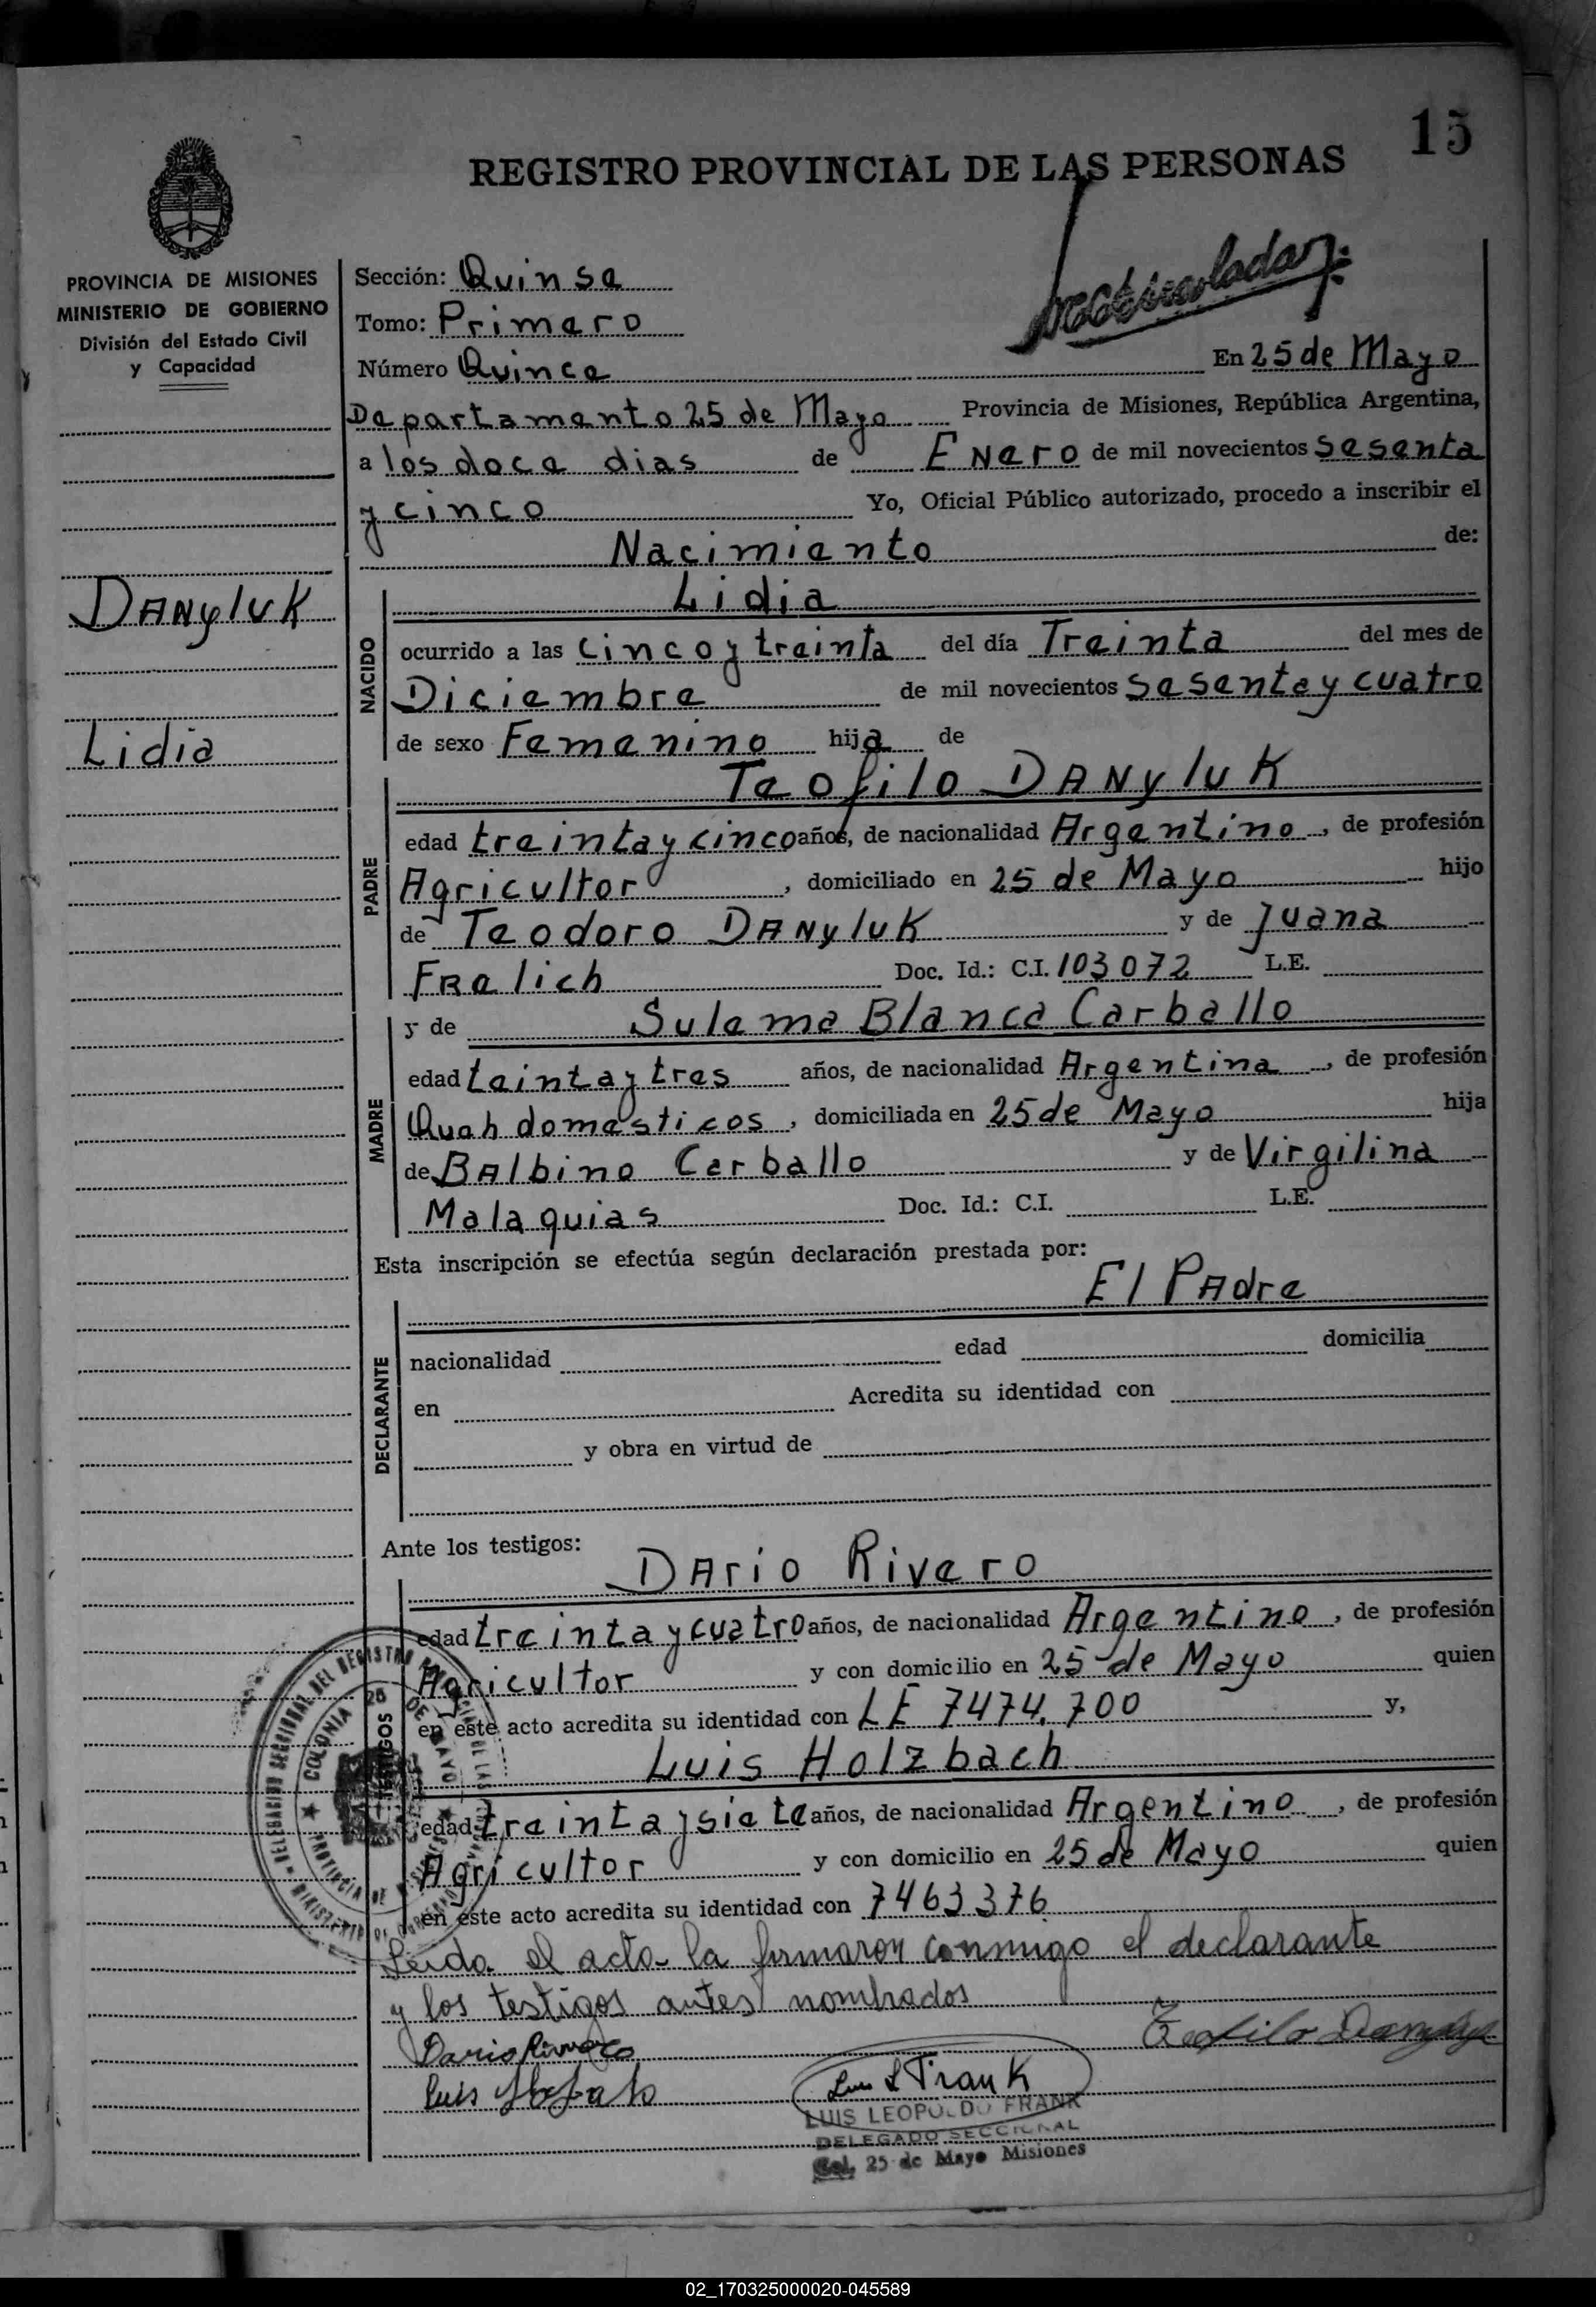 15
REGISTRO PROVINCIAL DE LAS PERSONAS
PROVINCIA DE MISIONES
MINISTERIO DE GOBIERNO
División del Estado Civil
y Capacidad
Sección: Quinse
Tomo: Primero
Número Quince En 25 de Mayo
Departamento 25 de Mayo Provincia de Misiones, República Argentina,
a los doce dias de Enero de mil novecientos Sesenta
y cinco Yo, Oficial Público autorizado, procedo a inscribir el
Nacimiento de:
DANyluK
Lidia
NACIDO
Lidia
ocurrido a las Cinco y treinta del día Treinta del mes de
Diciembre de mil novecientos Sesenta y cuatro
de sexo Femenino hija de
PADRE
Teofilo DANyluK
edad treinta y cinco años, de nacionalidad Argentino, de profesión
Agricultor, domiciliado en 25 de Mayo hijo
de Teodoro DANyluK y de Juana
FRalich Doc. Id.: C.I. 103072 L.E.
MADRE
y de Sulema Blanca Carballo
edad teinta y tres años, de nacionalidad Argentina, de profesión
Queh domesticos, domiciliada en 25 de Mayo hija
de BAlbino Carballo y de Virgilina
Malaquias Doc. Id.: C.I. L.E.
Esta inscripción se efectúa según declaración prestada por:
El PAdre
DECLARANTE
nacionalidad edad domicilia
en Acredita su identidad con
y obra en virtud de
Ante los testigos:
TESTIGOS
DArio Rivero
edad treinta y cuatro años, de nacionalidad Argentino, de profesión
Agricultor y con domicilio en 25 de Mayo quien
en este acto acredita su identidad con LE 7474.700 y,
Luis Holzbach
edad treinta y siete años, de nacionalidad Argentino, de profesión
Agricultor y con domicilio en 25 de Mayo quien
en este acto acredita su identidad con 7463376
Leida el acta la firmaron conmigo el declarante
y los testigos antes nombrados
Dario Rivero
Teofilo
Luis
Luis L Frank
LUIS LEOPOLDO FRANK
DELEGADO SECCIONAL
Col. 25 de Mayo Misiones
COLONIA 25 DE MAYO
PROVINCIA DE MISIONES
02_170325000020-045589